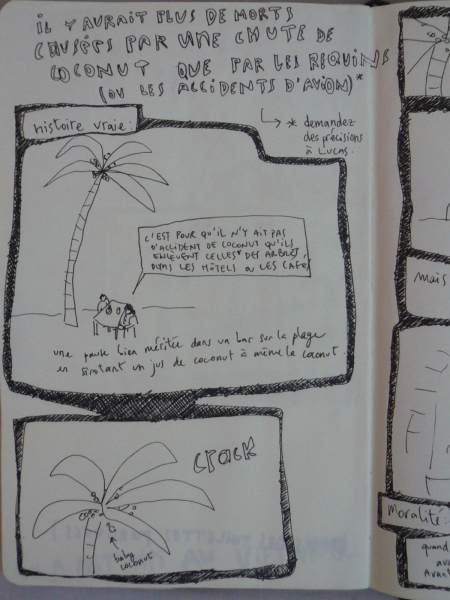 IL Y AURAIT PLUS DE MORTS
CAUSÉES PAR UNE CHUTE DE
COCONUT QUE PAR LES REQUINS
(OU LES ACCIDENTS D'AVION)*
* demandez
des précisions
à LUCAS.
histoire vraie:
C'EST POUR QU'IL N'Y AIT PAS
D'ACCIDENT DE COCONUT QU'ILS
ENLÈVENT CELLES* DES ARBRES
DANS LES HÔTELS OU LES CAFÉS
une pause bien méritée dans un bar sur la plage
en sirotant un jus de coconut à même le coconut.
CRACK
baby
coconut
mais
moralité:
quand
ava
avant